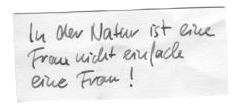 In der Natur ist eine
Frau nicht einfach
eine Frau!